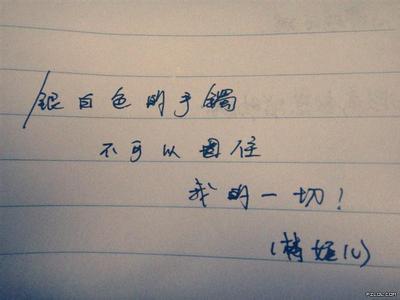 银白色的手镯
不可以困住
我的一切!
PZLDL.COM